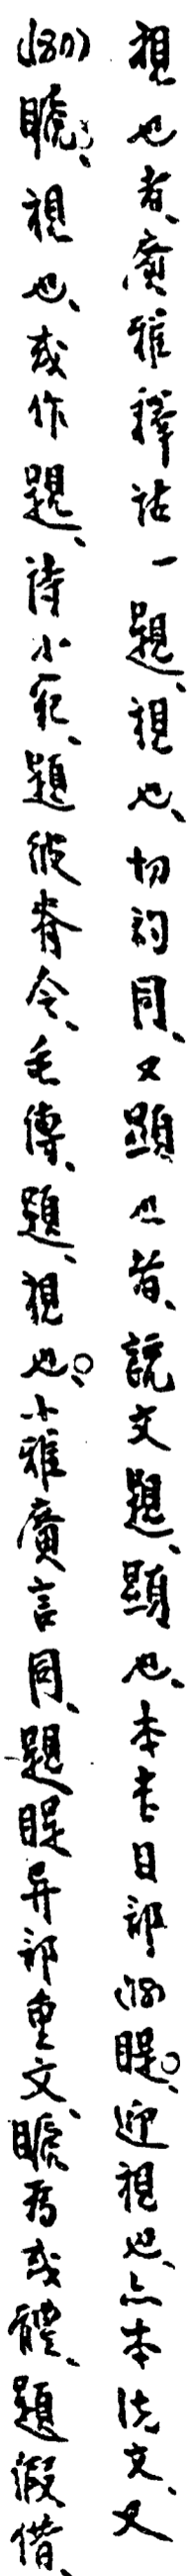 視也者、廣雅釋詁一題、視也、切韵同、又顯也者、說文題、顯也、本書目部(18)睼、迎視也、亦本說文、又
(180)䁤、視也、或作題、詩小宛、題彼脊令、毛傳、題、視也。小雅廣言同、題睼异部重文、䁤爲或體、題假借、